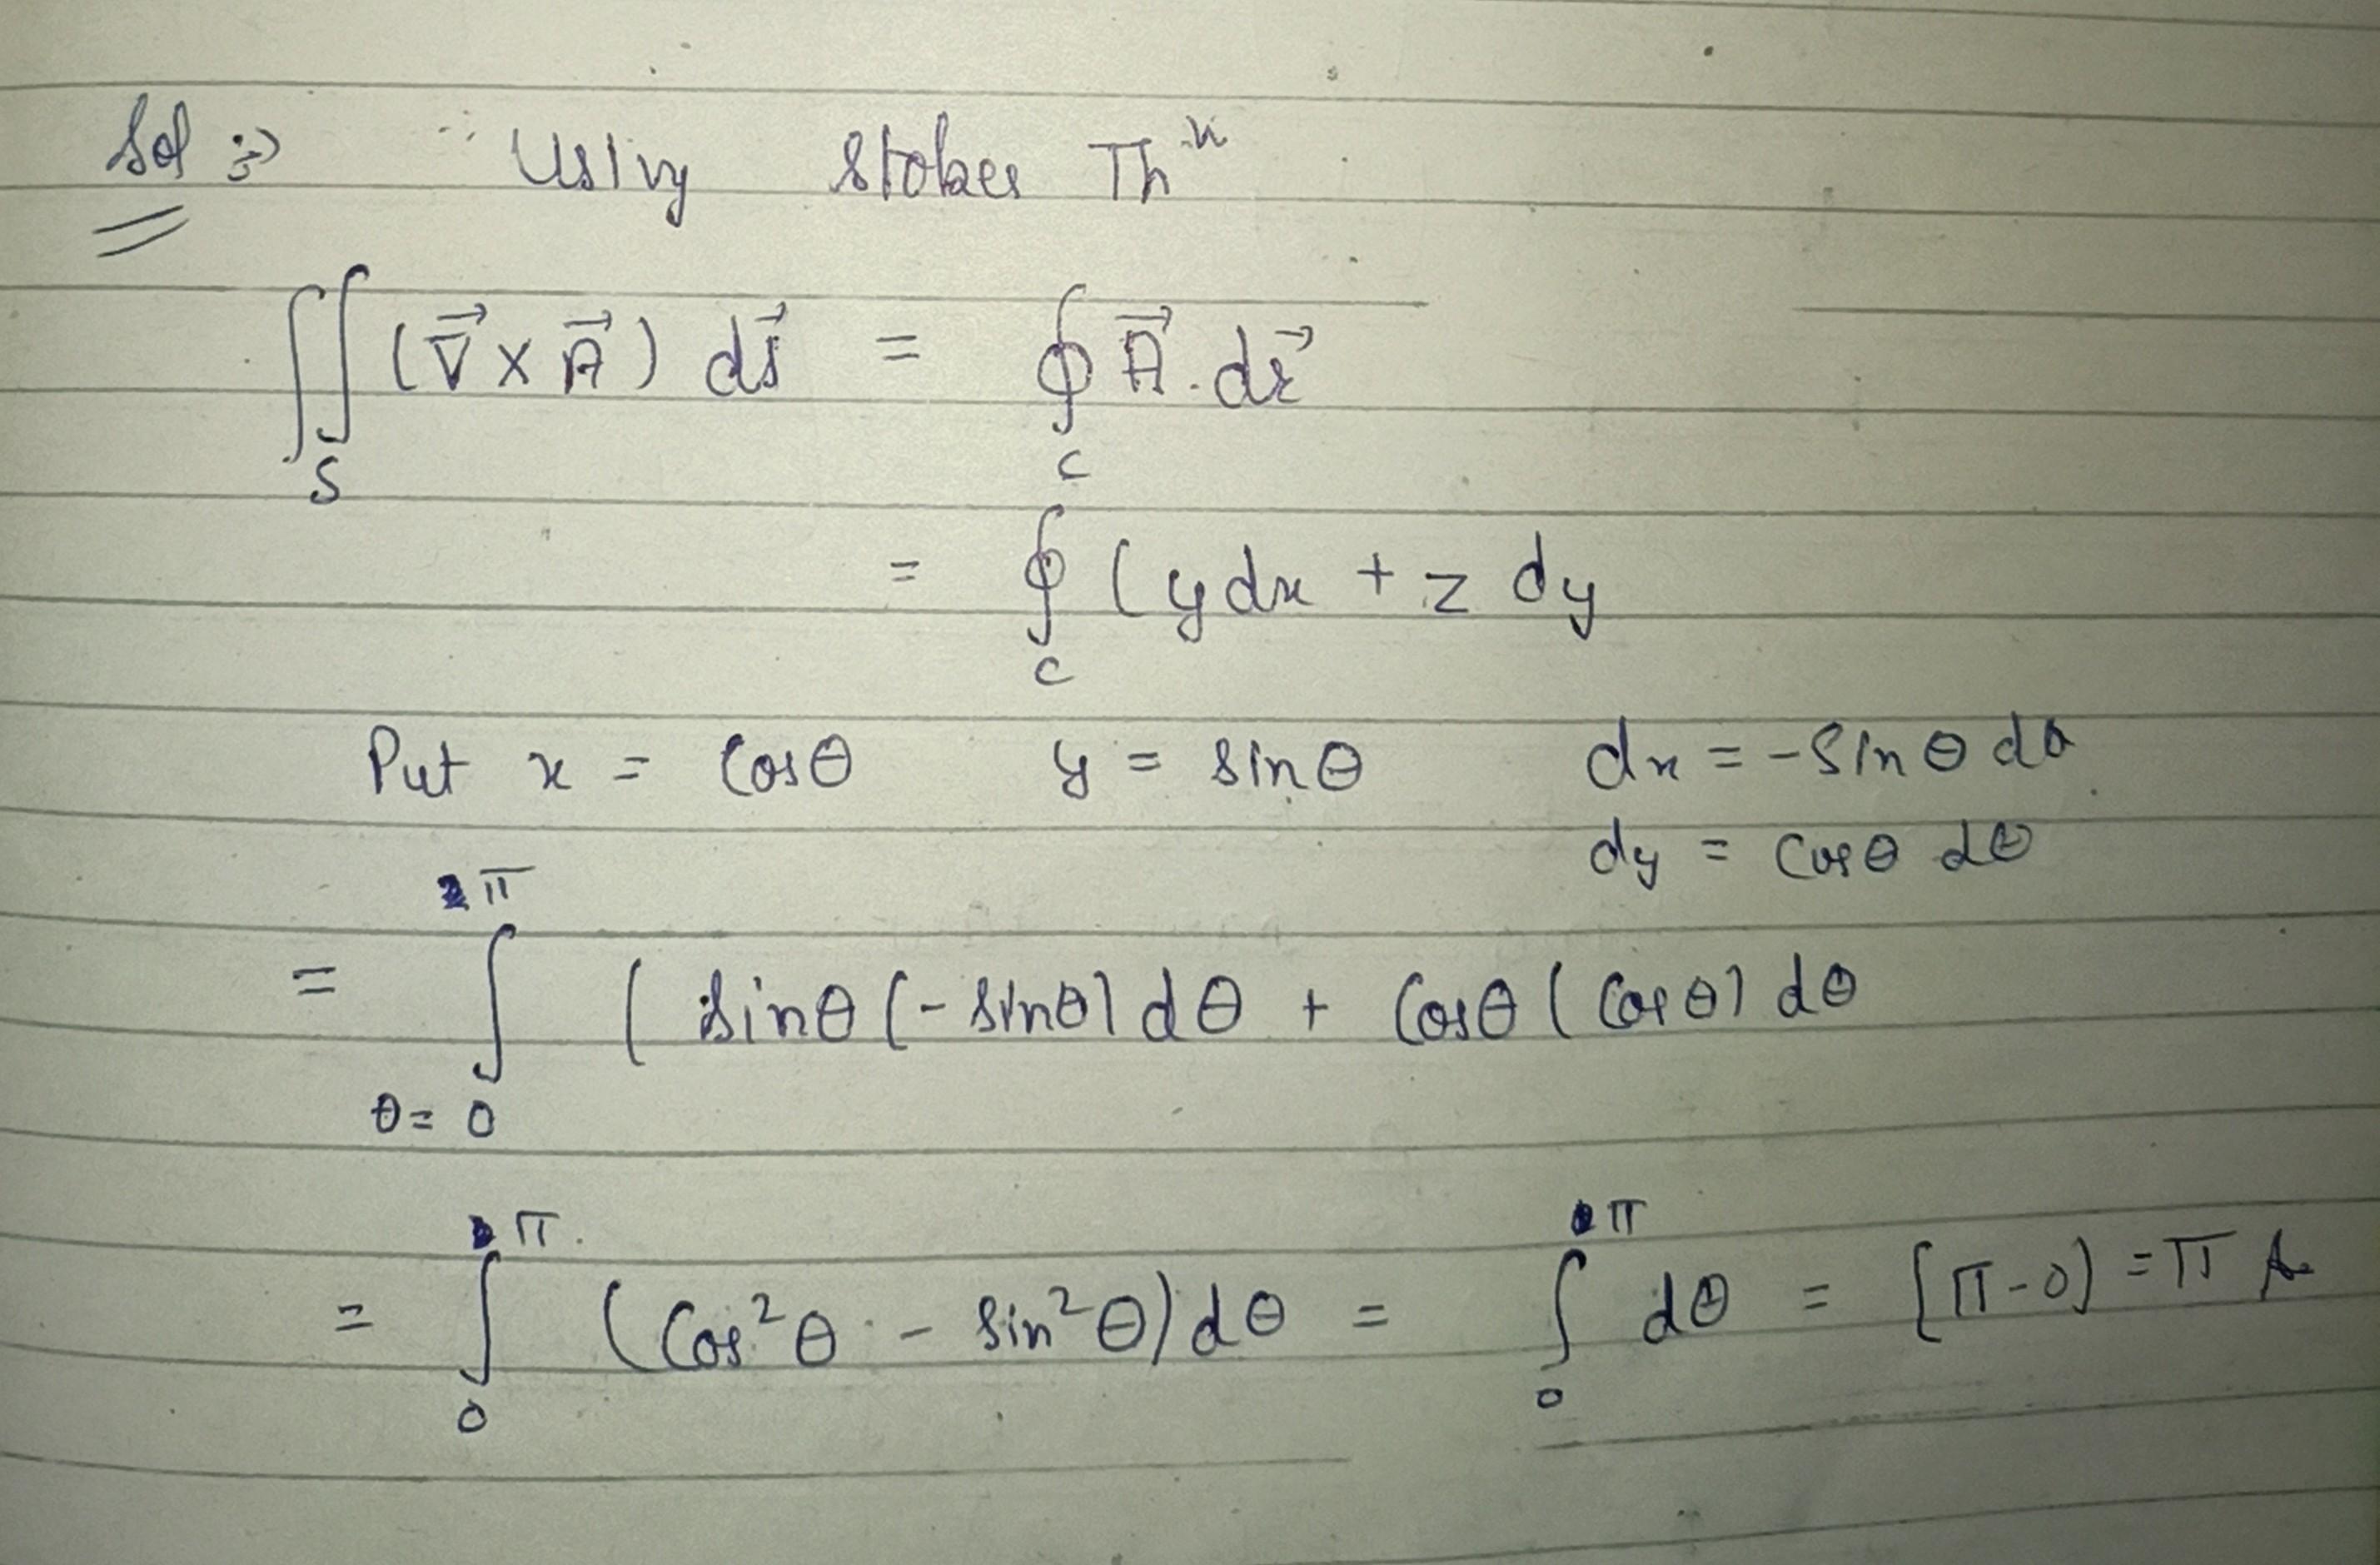 Sol :⇒ Using Stokes Thⁿ
∬_S (∇⃗ × A⃗) ds⃗ = ∮_C A⃗ . dr⃗
= ∮_C (y dx + z dy
Put x = Cosθ y = Sinθ dx = -Sinθ dθ
dy = Cosθ dθ
= ∫_{θ=0}^{2π} ( Sinθ (-Sinθ) dθ + Cosθ (Cosθ) dθ
= ∫_0^{π} (Cos²θ - Sin²θ) dθ = ∫_0^{π} dθ = [π-0] = π